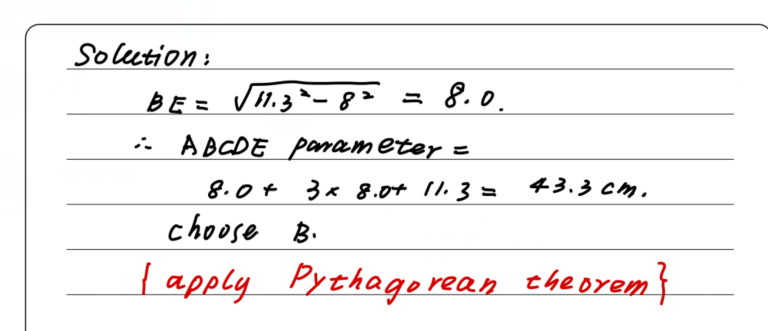 Solution:
BE = √11.3²-8² = 8.0.
∴ ABCDE parameter =
8.0 + 3 × 8.0 + 11.3 = 43.3 cm.
choose B.
{apply Pythagorean theorem}